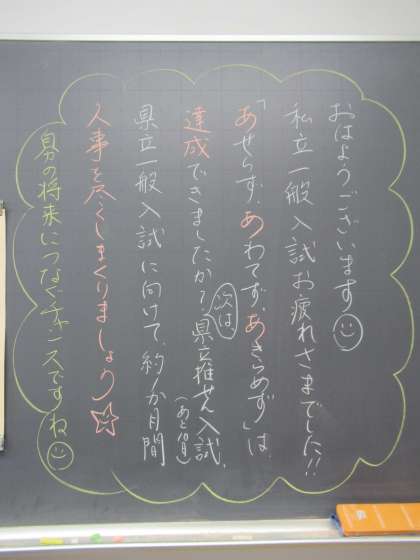 おはようございます
私立一般入試お疲れさまでした!!
「あせらず、あわてず、あきらめず」は、
達成できましたか? 次は県立推せん入試、
(あと10日)
県立一般入試に向けて、約1か月間
人事を尽くしまくりましょう
自分の将来につなぐチャンスですね